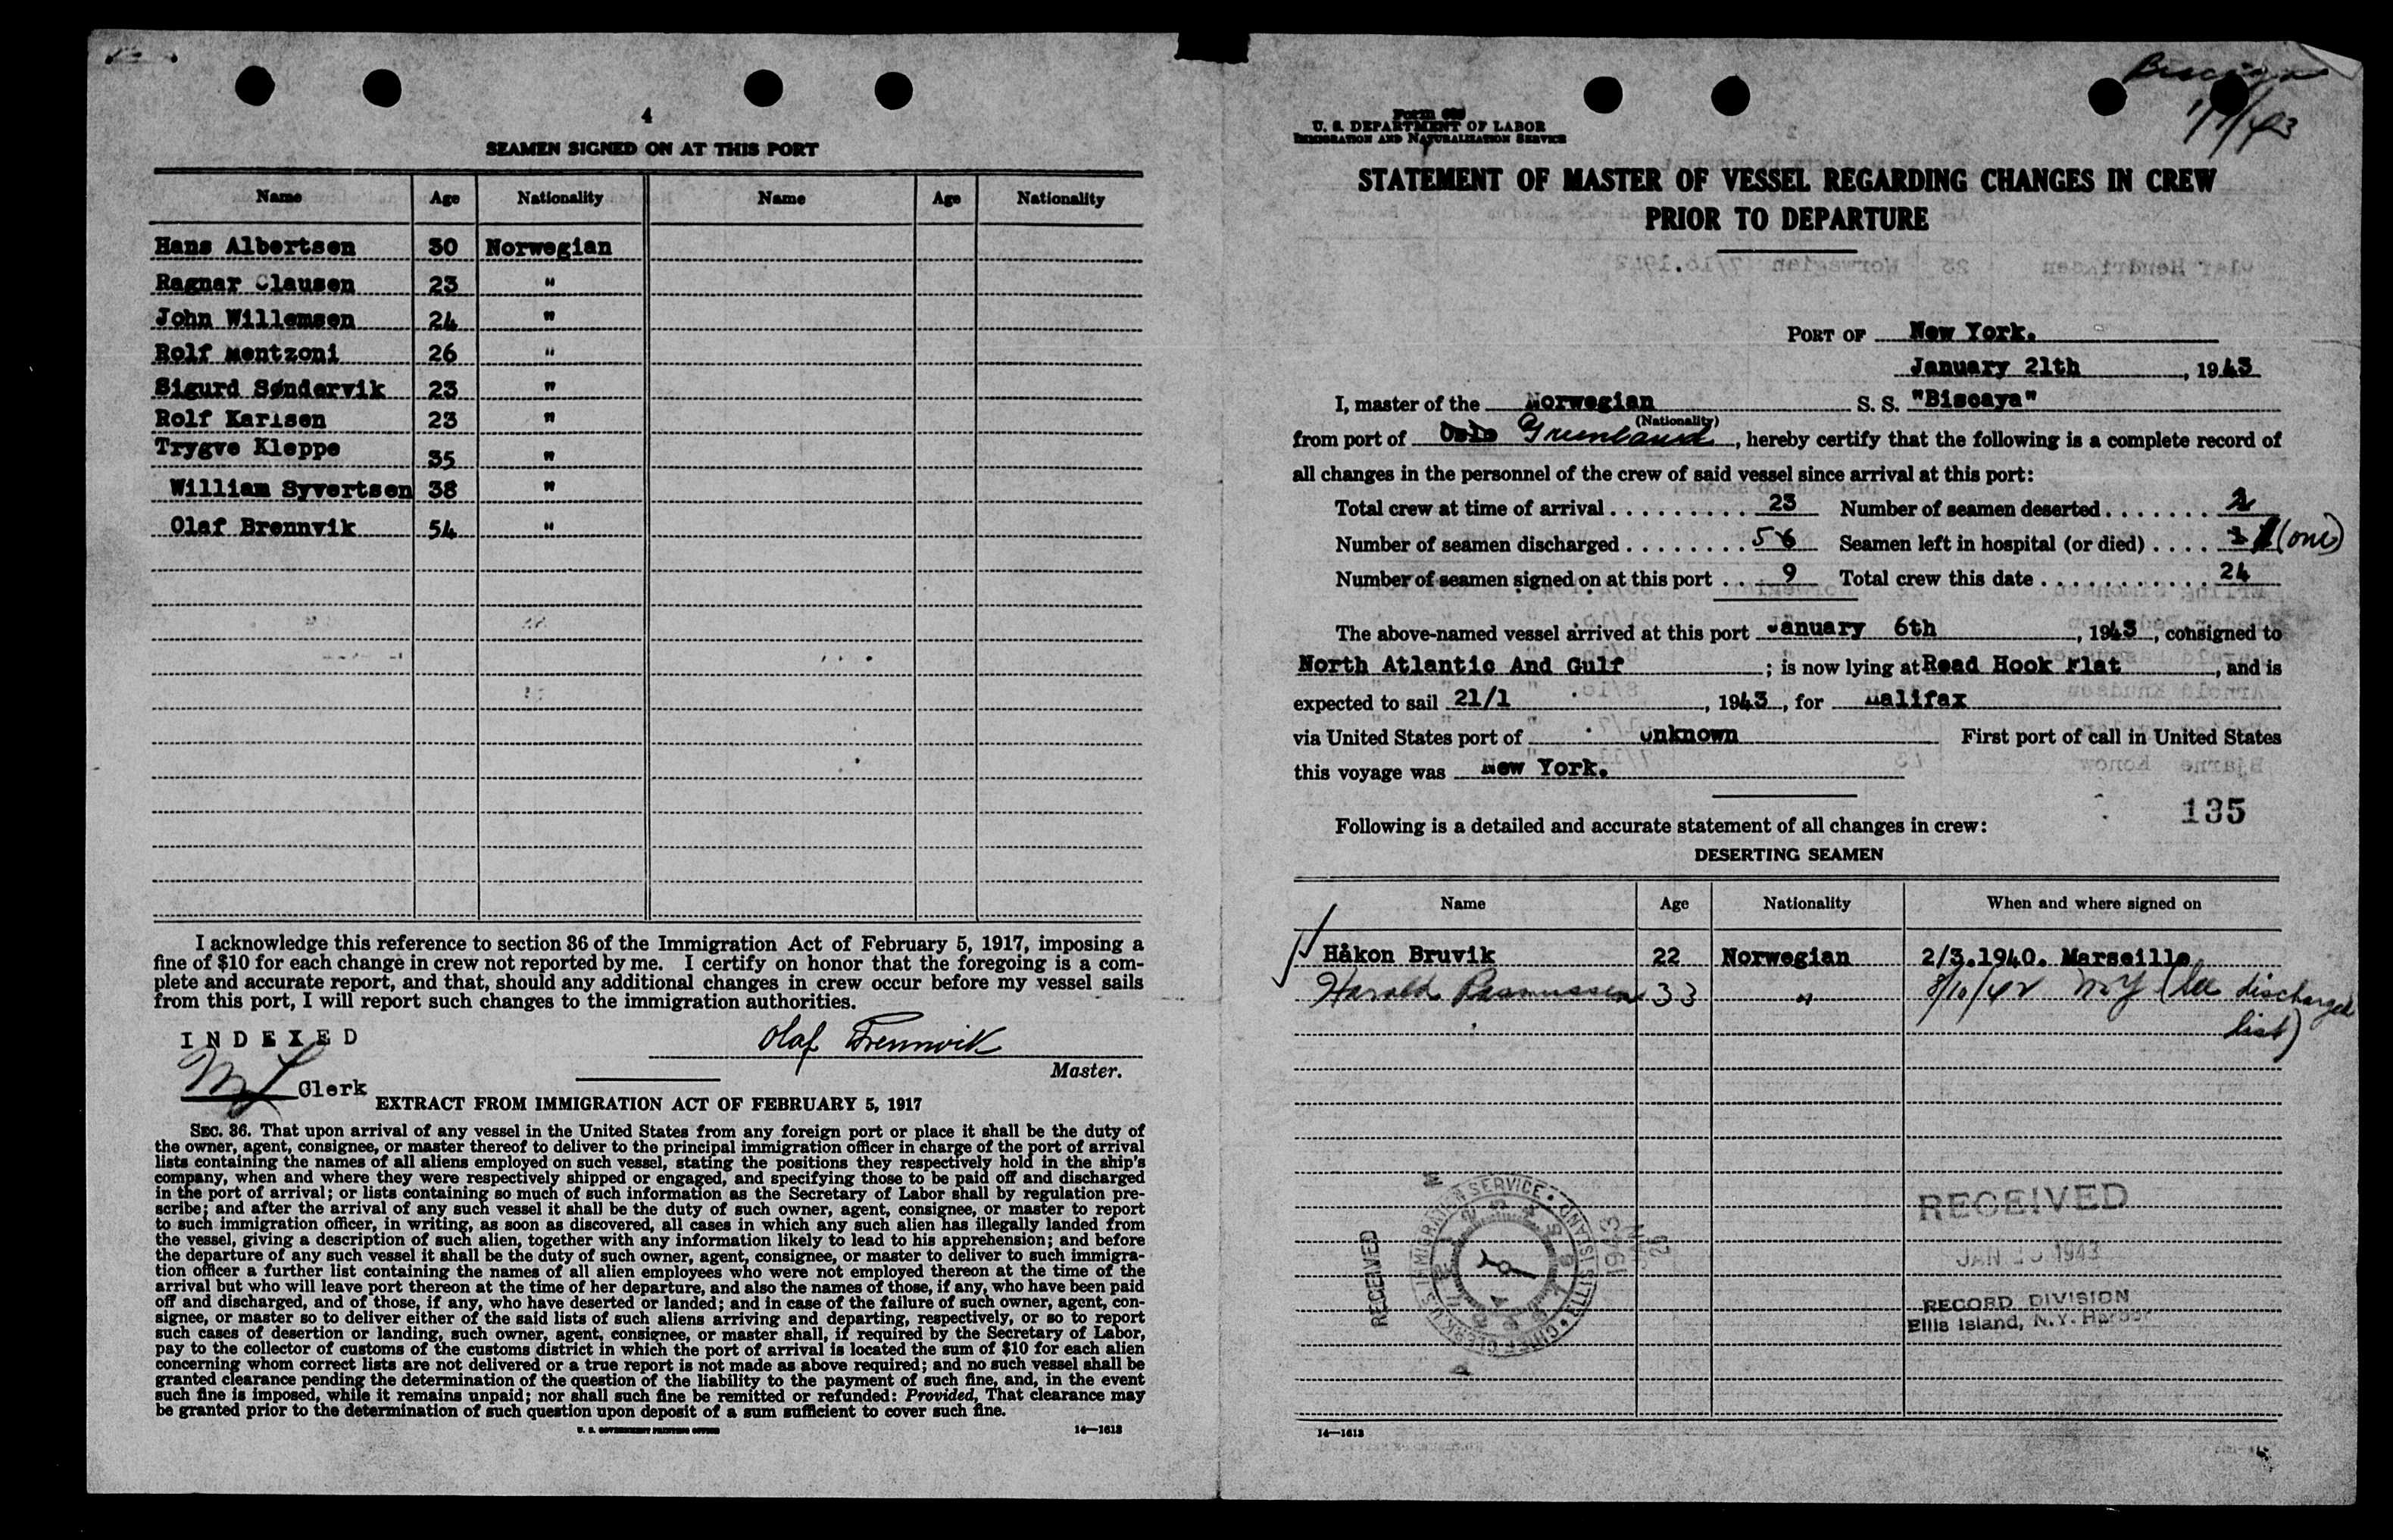 4
SEAMEN SIGNED ON AT THIS PORT
Name Age Nationality Name Age Nationality
Hans Albertsen 30 Norwegian
Ragnar Clausen 23 "
John Willemsen 24 "
Rolf Mentzoni 26 "
Sigurd Søndervik 23 "
Rolf Karlsen 23 "
Trygve Kleppe 35 "
William Syvertsen 38 "
Olaf Brennvik 54 "
I acknowledge this reference to section 36 of the Immigration Act of February 5, 1917, imposing a
fine of $10 for each change in crew not reported by me. I certify on honor that the foregoing is a com-
plete and accurate report, and that, should any additional changes in crew occur before my vessel sails
from this port, I will report such changes to the immigration authorities.
INDEXED
Olaf Brennvik
Master.
Clerk
EXTRACT FROM IMMIGRATION ACT OF FEBRUARY 5, 1917
SEC. 36. That upon arrival of any vessel in the United States from any foreign port or place it shall be the duty of
the owner, agent, consignee, or master thereof to deliver to the principal immigration officer in charge of the port of arrival
lists containing the names of all aliens employed on such vessel, stating the positions they respectively hold in the ship's
company, when and where they were respectively shipped or engaged, and specifying those to be paid off and discharged
in the port of arrival; or lists containing so much of such information as the Secretary of Labor shall by regulation pre-
scribe; and after the arrival of any such vessel it shall be the duty of such owner, agent, consignee, or master to report
to such immigration officer, in writing, as soon as discovered, all cases in which any such alien has illegally landed from
the vessel, giving a description of such alien, together with any information likely to lead to his apprehension; and before
the departure of any such vessel it shall be the duty of such owner, agent, consignee, or master to deliver to such immigra-
tion officer a further list containing the names of all alien employees who were not employed thereon at the time of the
arrival but who will leave port thereon at the time of her departure, and also the names of those, if any, who have been paid
off and discharged, and of those, if any, who have deserted or landed; and in case of the failure of such owner, agent, con-
signee, or master so to deliver either of the said lists of such aliens arriving and departing, respectively, or so to report
such cases of desertion or landing, such owner, agent, consignee, or master shall, if required by the Secretary of Labor,
pay to the collector of customs of the customs district in which the port of arrival is located the sum of $10 for each alien
concerning whom correct lists are not delivered or a true report is not made as above required; and no such vessel shall be
granted clearance pending the determination of the question of the liability to the payment of such fine, and, in the event
such fine is imposed, while it remains unpaid; nor shall such fine be remitted or refunded: Provided, That clearance may
be granted prior to the determination of such question upon deposit of a sum sufficient to cover such fine.
U. S. GOVERNMENT PRINTING OFFICE 14—1613
Biscaya
Form
U. S. DEPARTMENT OF LABOR
IMMIGRATION AND NATURALIZATION SERVICE
STATEMENT OF MASTER OF VESSEL REGARDING CHANGES IN CREW
PRIOR TO DEPARTURE
PORT OF New York.
January 21th, 1943
I, master of the Norwegian S. S. "Biscaya"
(Nationality)
from port of Oslo Greenland, hereby certify that the following is a complete record of
all changes in the personnel of the crew of said vessel since arrival at this port:
Total crew at time of arrival 23 Number of seamen deserted 2
Number of seamen discharged 5 Seamen left in hospital (or died) 1 (one)
Number of seamen signed on at this port 9 Total crew this date 24
The above-named vessel arrived at this port January 6th, 1943, consigned to
North Atlantic And Gulf; is now lying at Read Hook Flat, and is
expected to sail 21/1, 1943, for Halifax
via United States port of unknown First port of call in United States
this voyage was New York.
135
Following is a detailed and accurate statement of all changes in crew:
DESERTING SEAMEN
Name Age Nationality When and where signed on
Håkon Bruvik 22 Norwegian 2/3.1940. Marseille
Harold Rasmussen 33 " 8/10/42 NY (see discharged
list)
RECEIVED
IMMIGRATION SERVICE • ELLIS ISLAND • CHIEF CLERK
1943 JAN
RECEIVED
JAN 1943
RECORD DIVISION
Ellis Island, N.Y. Harbor
14—1613